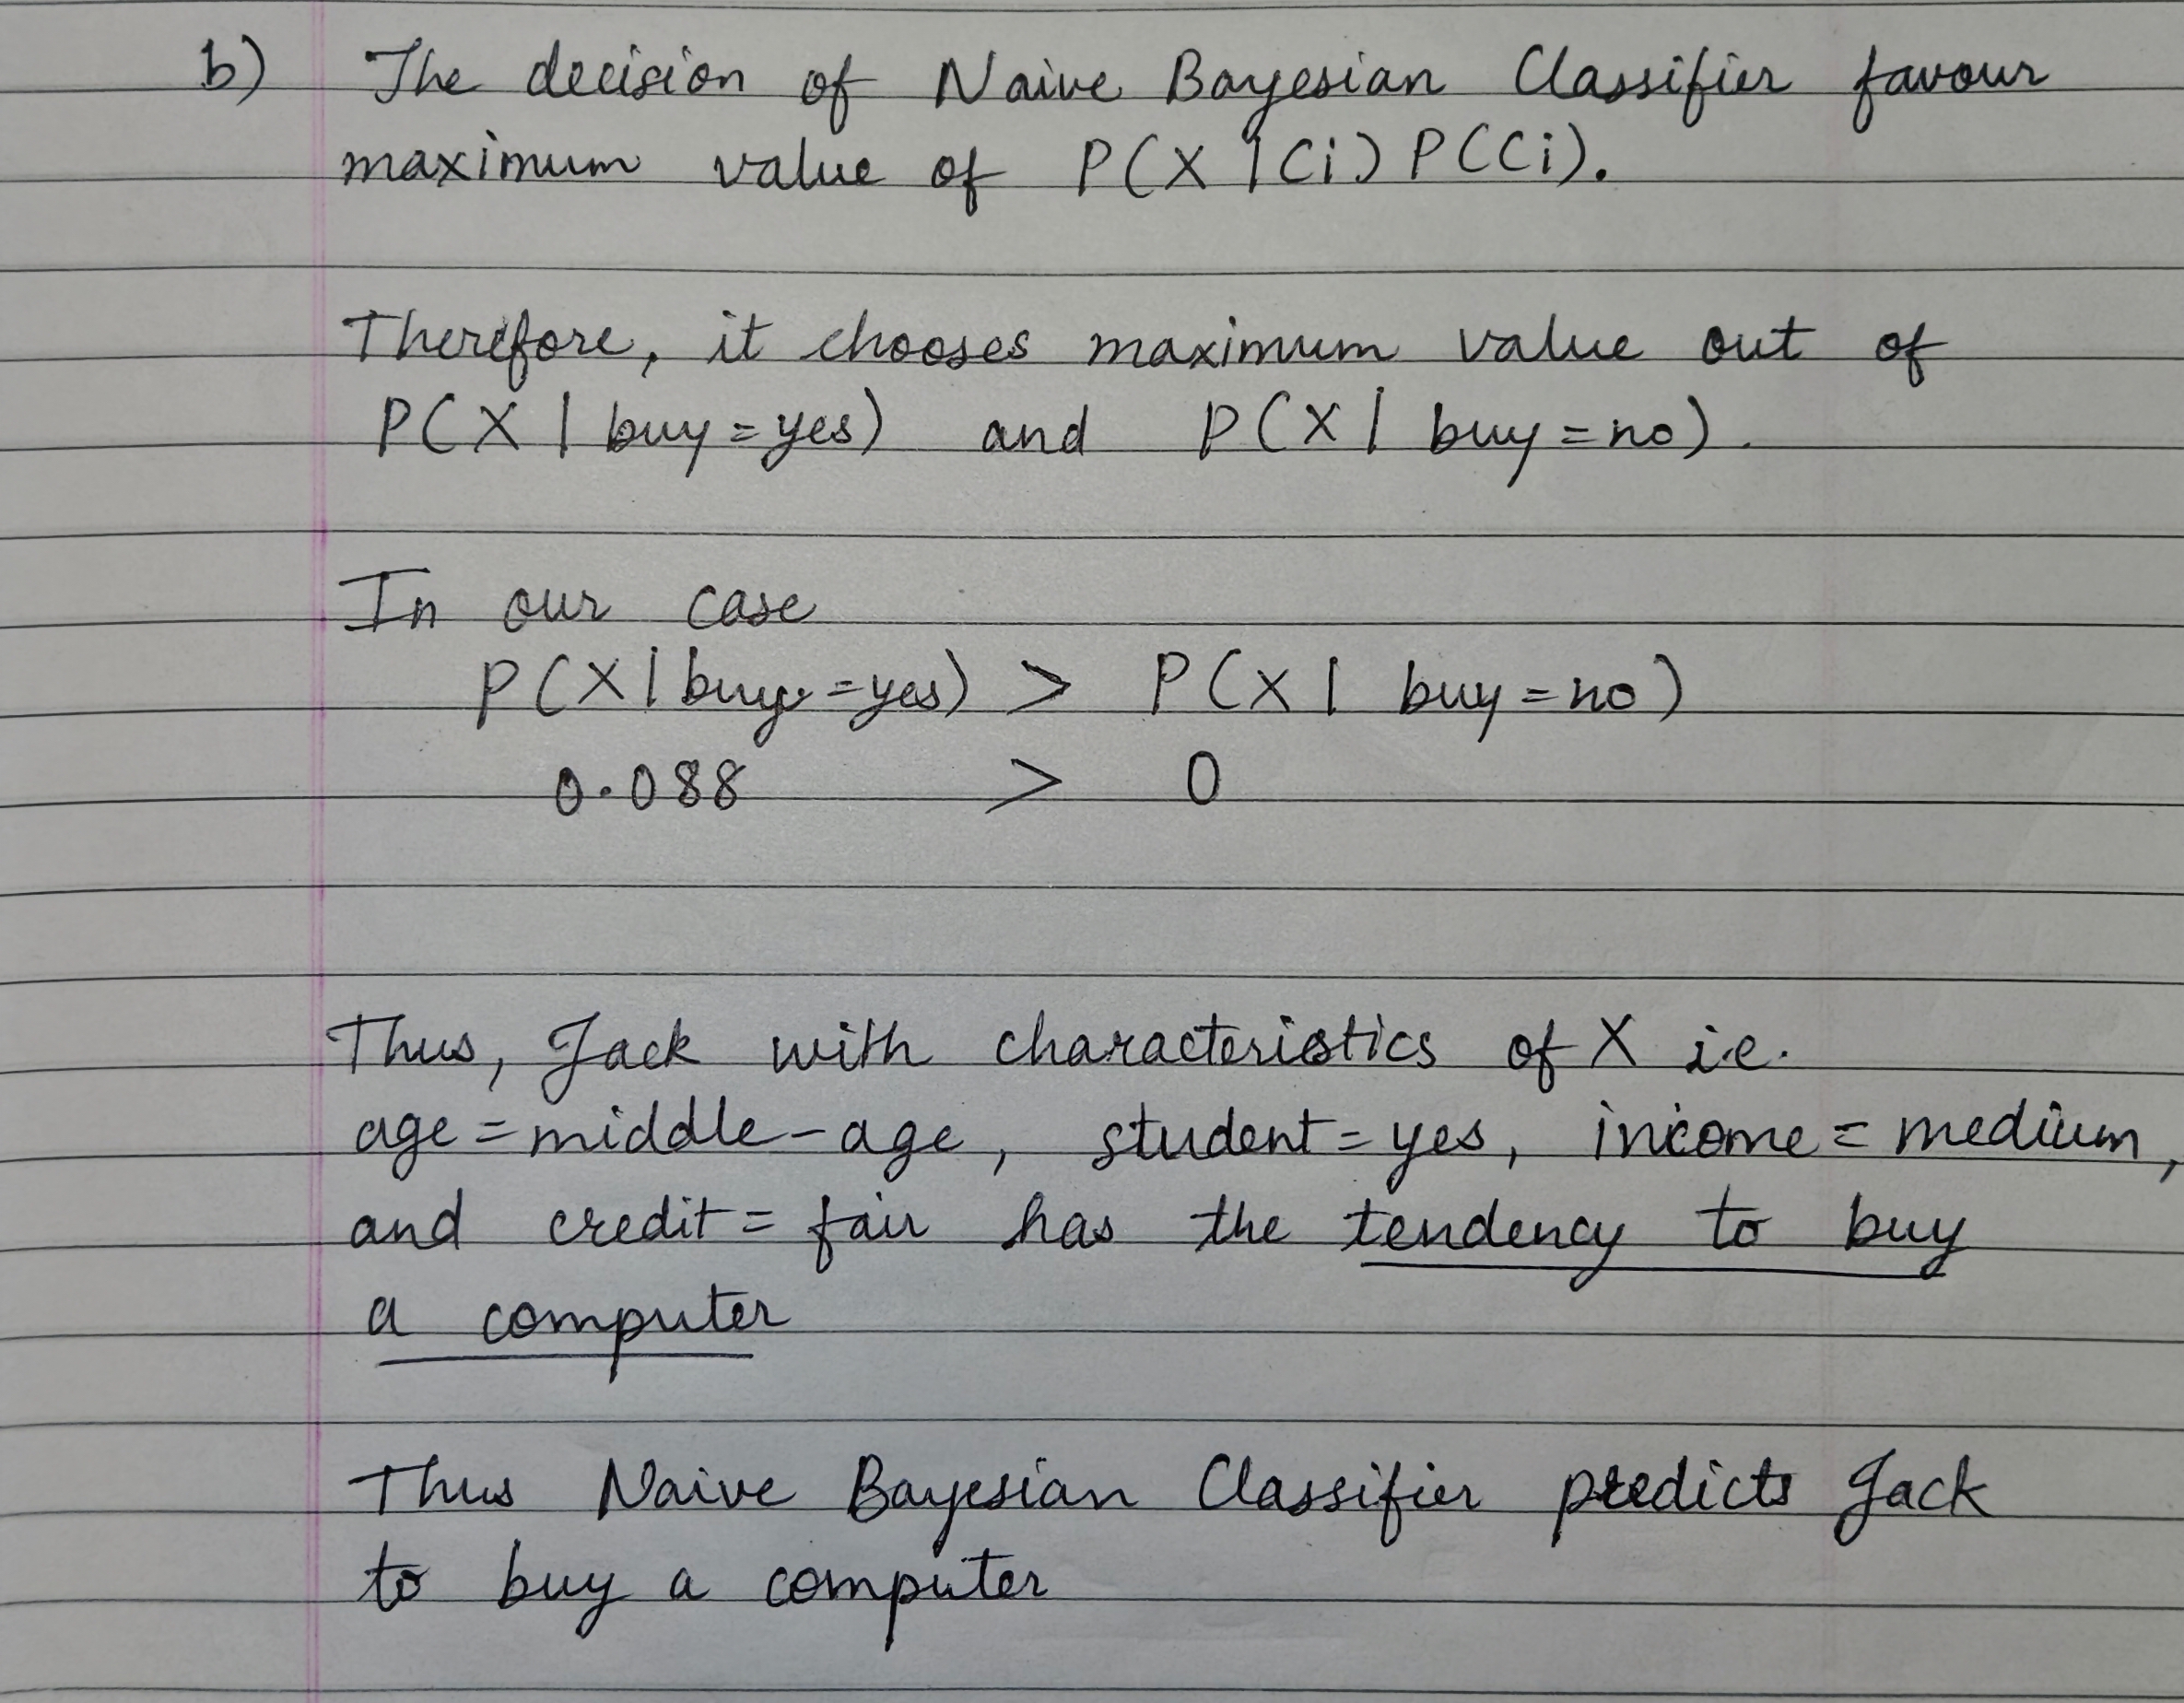 b) The decision of Naive Bayesian Classifier favour
maximum value of P(X | Ci) P(Ci).
Therefore, it chooses maximum value out of
P(X | buy = yes) and P(X | buy = no).
In our case
P(X | buy = yes) > P(X | buy = no)
0.088 > 0
Thus, Jack with characteristics of X i.e.
age = middle-age, student = yes, income = medium,
and credit = fair has the tendency to buy
a computer
Thus Naive Bayesian Classifier predicts Jack
to buy a computer